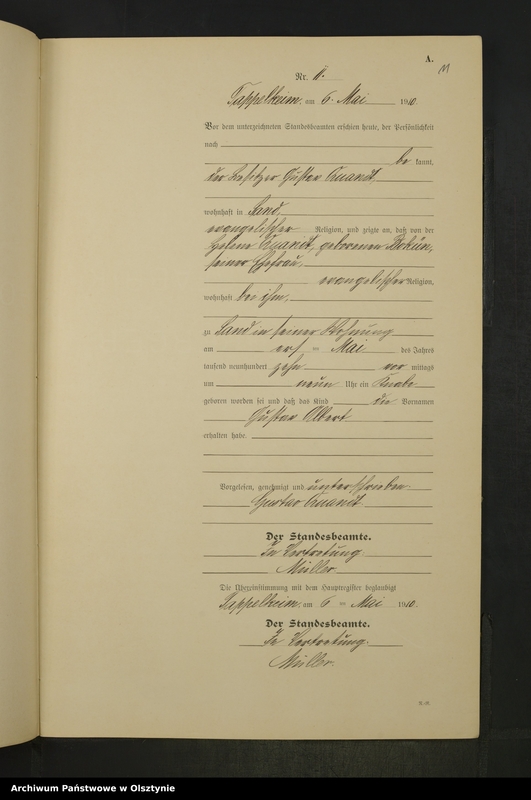 A.
11
Nr. 11.
Tappelkeim, am 6. Mai 1910.
Vor dem unterzeichneten Standesbeamten erschien heute, der Persönlichkeit
nach
be kannt,
der Besitzer Gustav Quandt,
wohnhaft in Sand,
evangelischer Religion, und zeigte an, daß von der
Helene Quandt, geborenen
seiner Ehefrau,
evangelischer Religion,
wohnhaft bei ihm,
zu Sand in seiner Wohnung
am ersten Mai des Jahres
tausend neunhundert zehn vor mittags
um neun Uhr ein Knabe
geboren worden sei und daß das Kind die Vornamen
Gustav Albert
erhalten habe.
Vorgelesen, genehmigt und unterschrieben
Gustav Quandt
Der Standesbeamte.
In Vertretung.
Müller
Die Übereinstimmung mit dem Hauptregister beglaubigt
Tappelkeim, am 6 ten Mai 1910.
Der Standesbeamte.
In Vertretung.
Müller.
Archiwum Państwowe w Olsztynie